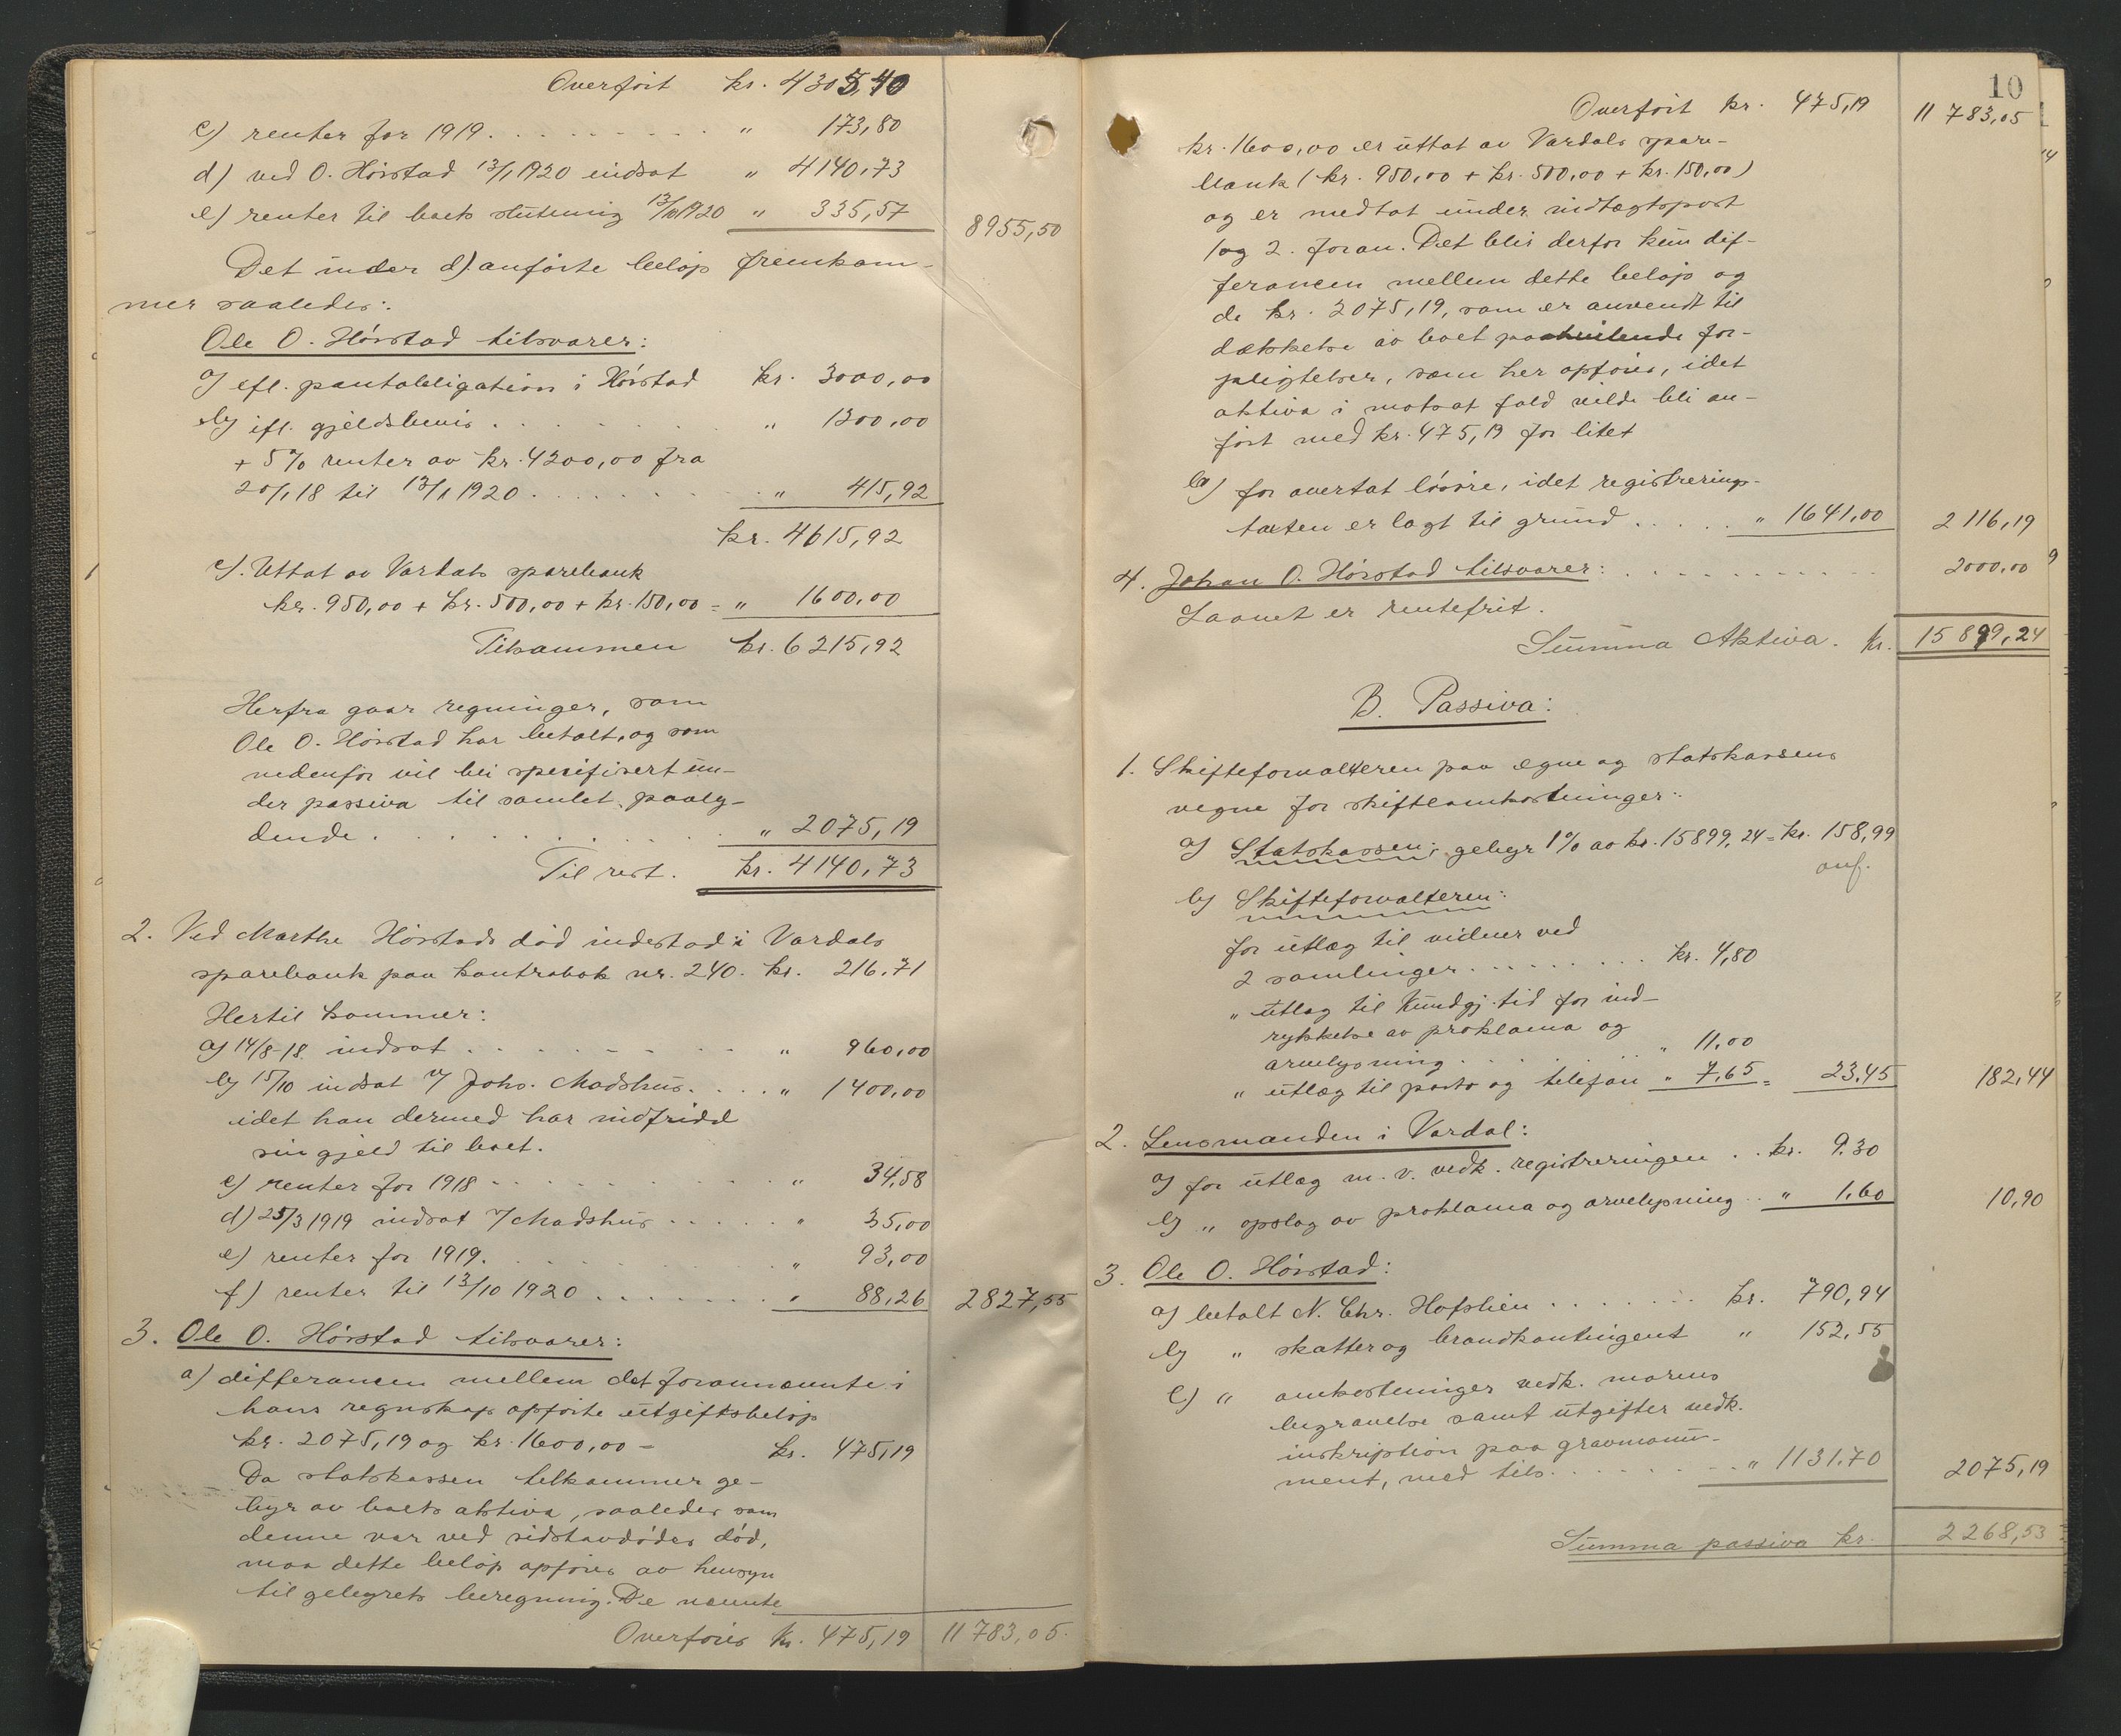 Overført kr. 4305,40
c) renter for 1919. . . . . . . . . . " 173,80
d) ved O. Hörstad 13/1 1920 indsat " 4140,73
e) renter til boets slutning 13/10 1920 " 335,57 8955,50
Det under d) anførte beløp fremkom-
mer saaledes:
Ole O. Hörstad tilsvarer:
a) efl. pantobligation i Hörstad kr. 3000,00
b) ifl. gjeldsbevis . . . . . . . . " 1200,00
+ 5% renter av kr. 4200,00 fra
20/1 18 til 13/1 1920 . . . . . . . . . " 415,92
kr. 4615,92
c). Uttat av Vardals sparebank
kr. 950,00 + kr. 500,00 + kr. 150,00 = " 1600,00
Tilsammen kr. 6215,92
Herfra gaar regninger, som
Ole O. Hörstad har betalt, og som
nedenfor vil bli spesifisert un-
der passiva til samlet paaly-
dende . . . . . . . . . . . . " 2075,19
Til rest. kr. 4140,73
2. Ved Marthe Hörstads död indestod i Vardals
sparebank paa kontrabok nr. 240. kr. 216.71
Hertil kommer:
a) 14/8-18. indsat . . . . . . . . . " 960,00
b) 15/10 indsat v/ Johs. Madshus. . . . . " 1400,00
idet han dermed har indfridd
sin gjeld til boet.
c) renter for 1918 . . . . . . . . . . " 34,58
d) 25/3 1919 indsat v/ Madshus . . . . . " 35,00
e) renter for 1919. . . . . . . . . . . " 93,00
f) renter til 13/10 1920 . . . . . . . . " 88,26 2827,55
3. Ole O. Hörstad tilsvarer:
a) differansen mellem det forannævnte i
hans regnskap opførte utgiftsbeløp
kr. 2075,19 og kr. 1600,00 = kr. 475,19
Da statskassen tilkommer ge-
byr av boets aktiva, saaledes som
denne var ved sidstavdödes död,
maa dette beløp opføres av hensyn
til gebyrets beregning. De nævnte
Overføres kr. 475,19 11 783,05.
10
Overført kr. 475,19 11 783,05
kr. 1600,00 er uttat av Vardals spare-
bank (kr. 950,00 + kr. 500,00 + kr. 150,00)
og er medtat under indtægtspost
1 og 2. foran. Det blir derfor kun dif-
feransen mellem dette beløp og
de kr. 2075,19, som er anvendt til
dækkelse av boet paahvilende for-
pligtelser, som her opføres, idet
aktiva i motsat fald vilde bli an-
ført med kr. 475,19 for litet
b) for overtat lösöre, idet registrerings-
taxten er lagt til grund . . . . . " 1641,00 2 116,19
4. Johan O. Hörstad tilsvarer: . . . . . . . . . . . 2000,00
Laanet er rentefrit.
Summa Aktiva. kr. 15 899,24
B. Passiva:
1. Skifteforvalteren paa egne og statskassens
vegne for skifteomkostninger:
a) Statskassen: gebyr 1% av kr. 15899,24 = kr. 158,99
anf.
b) Skifteforvalteren:
for utlæg til vidner ved
2 samlinger . . . . . . . . . kr. 4,80
" utlæg til Kundgj. tid for ind-
rykkelse av proklama og
arvelysning . . . . . . . . . " 11.00
" utlæg til porto og telefon " 7,65 = 23,45 182,44
2. Lensmanden i Vardal:
a) for utlæg m. v. vedk. registreringen . . kr. 9.30
b) " opslag av proklama og arvelysning . . " 1,60 10,90
3. Ole O. Hörstad:
a) betalt N. Chr. Hofslien . . . . . . . kr. 790,94
b) " skatter og brandkontingent " 152,55
c.) " omkostninger vedk. morens
begravelse samt utgifter vedk.
inskription paa gravmonu-
ment, med tils. . . . . . . . . " 1131.70 2075,19
Summa passiva kr. 2 268,53